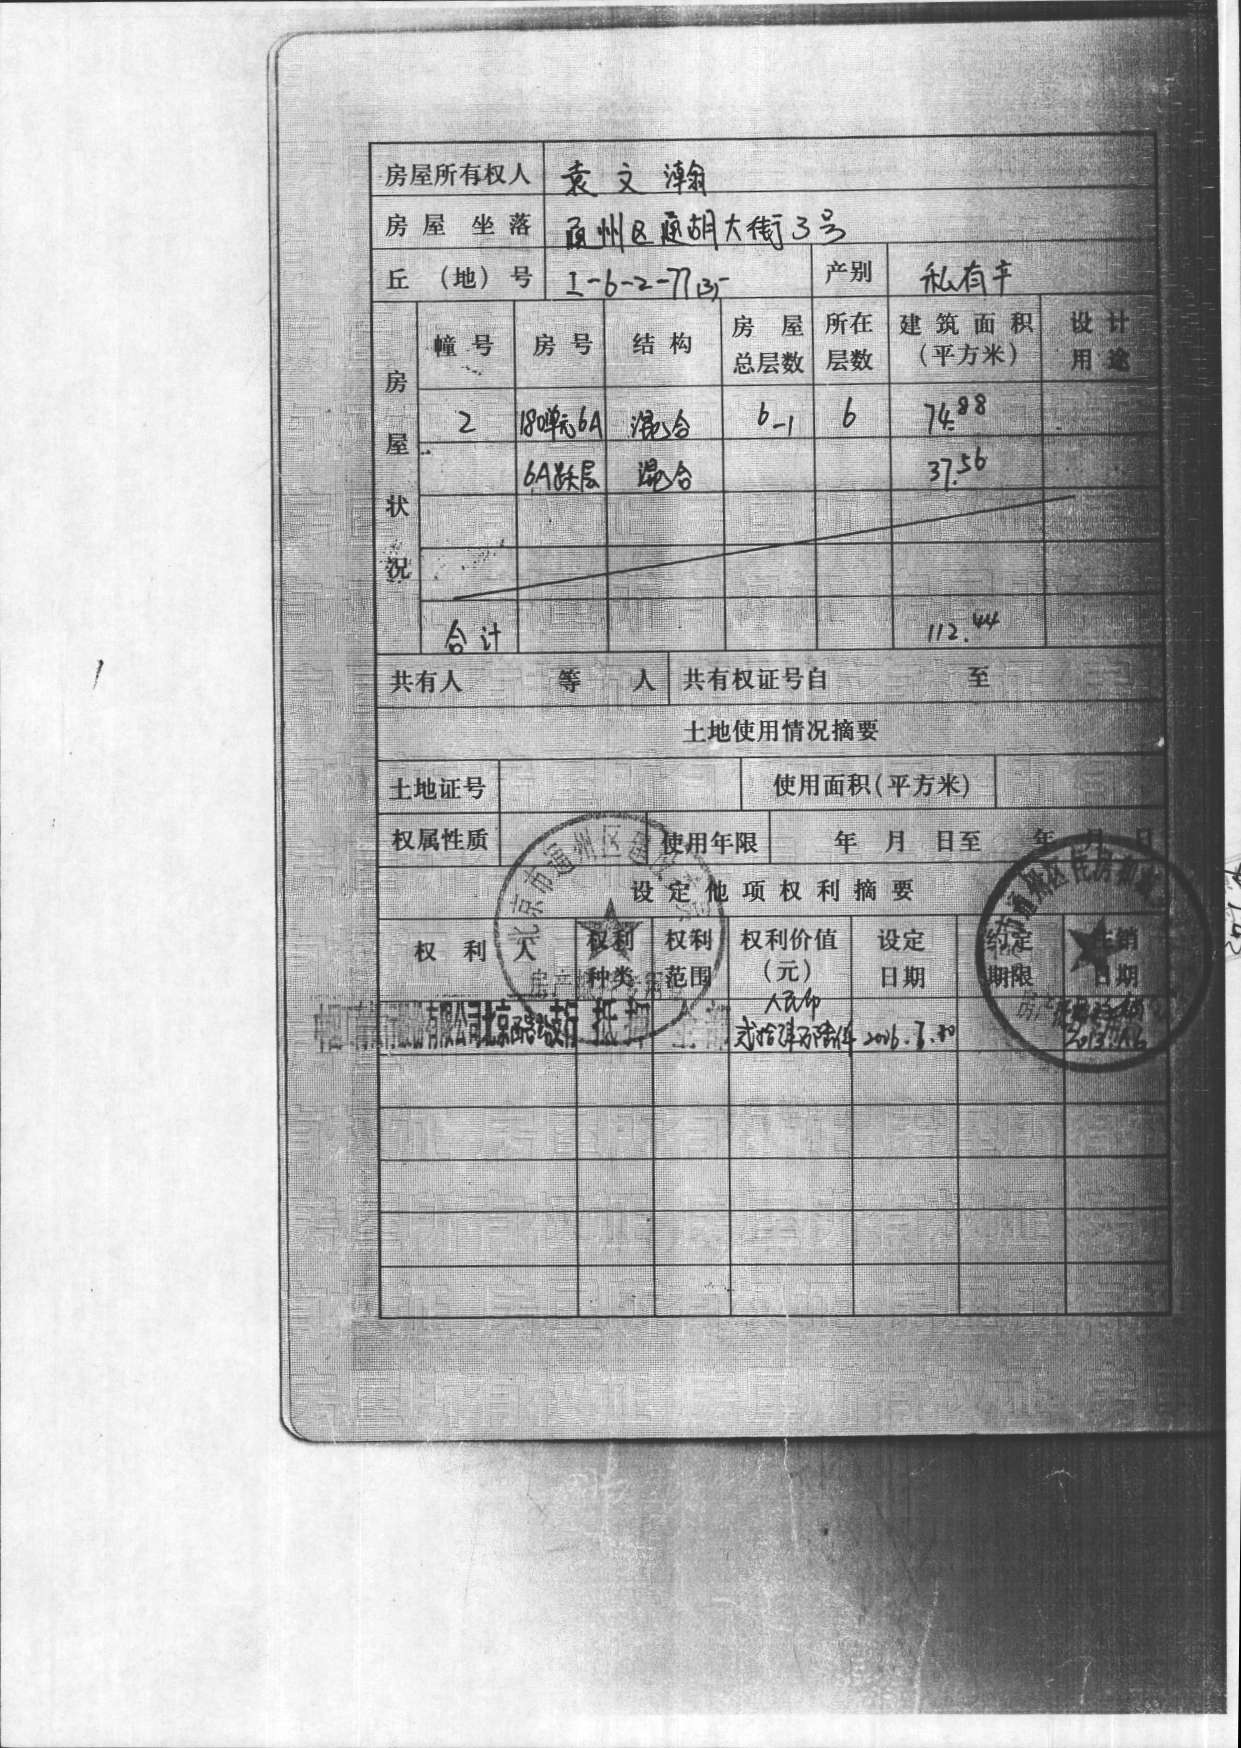 房屋所有权人 袁文瀚
房屋坐落 通州区通胡大街3号
丘（地）号 I-6-2-77(3)- 产别 私有
房屋状况 幢号 房号 结构 房屋总层数 所在层数 建筑面积（平方米） 设计用途
2 180单元6A 混合 6-1 6 74.88
6A跃层 混合 37.56
合计 112.44
共有人 等 人 共有权证号自 至
土地使用情况摘要
土地证号 使用面积(平方米)
权属性质 使用年限 年 月 日至 年 月 日
设定他项权利摘要
权利人 权利种类 权利范围 权利价值（元） 设定日期 约定期限 注销日期
有限公司北京西 支行 抵押 人民币 贰拾 万陆仟 2006.
北京市通州区建设委员
房产
市通州区住房和